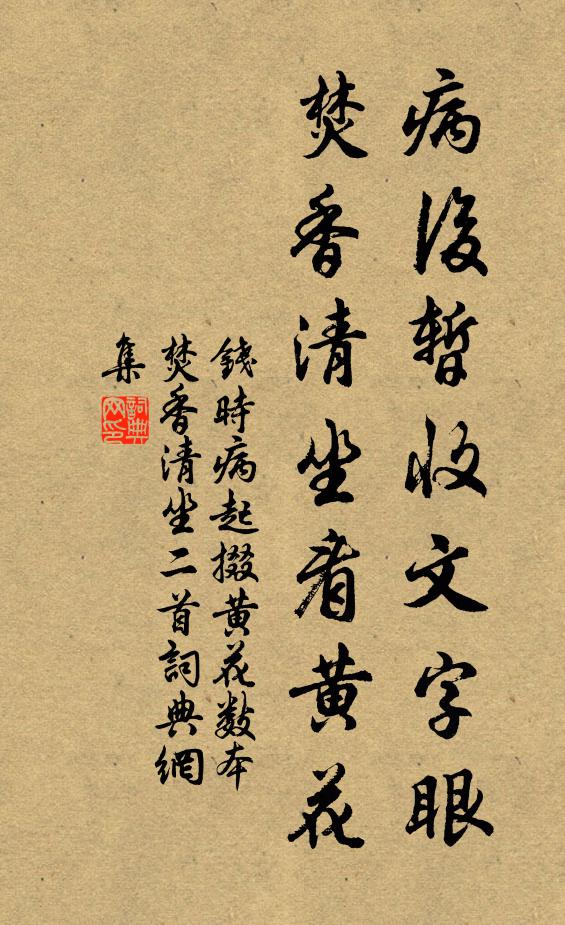 病後暫收文字眼
焚香清坐看黄花
錢時病起掇黄花數本
焚香清坐二首詞典網
集
詞典
网印